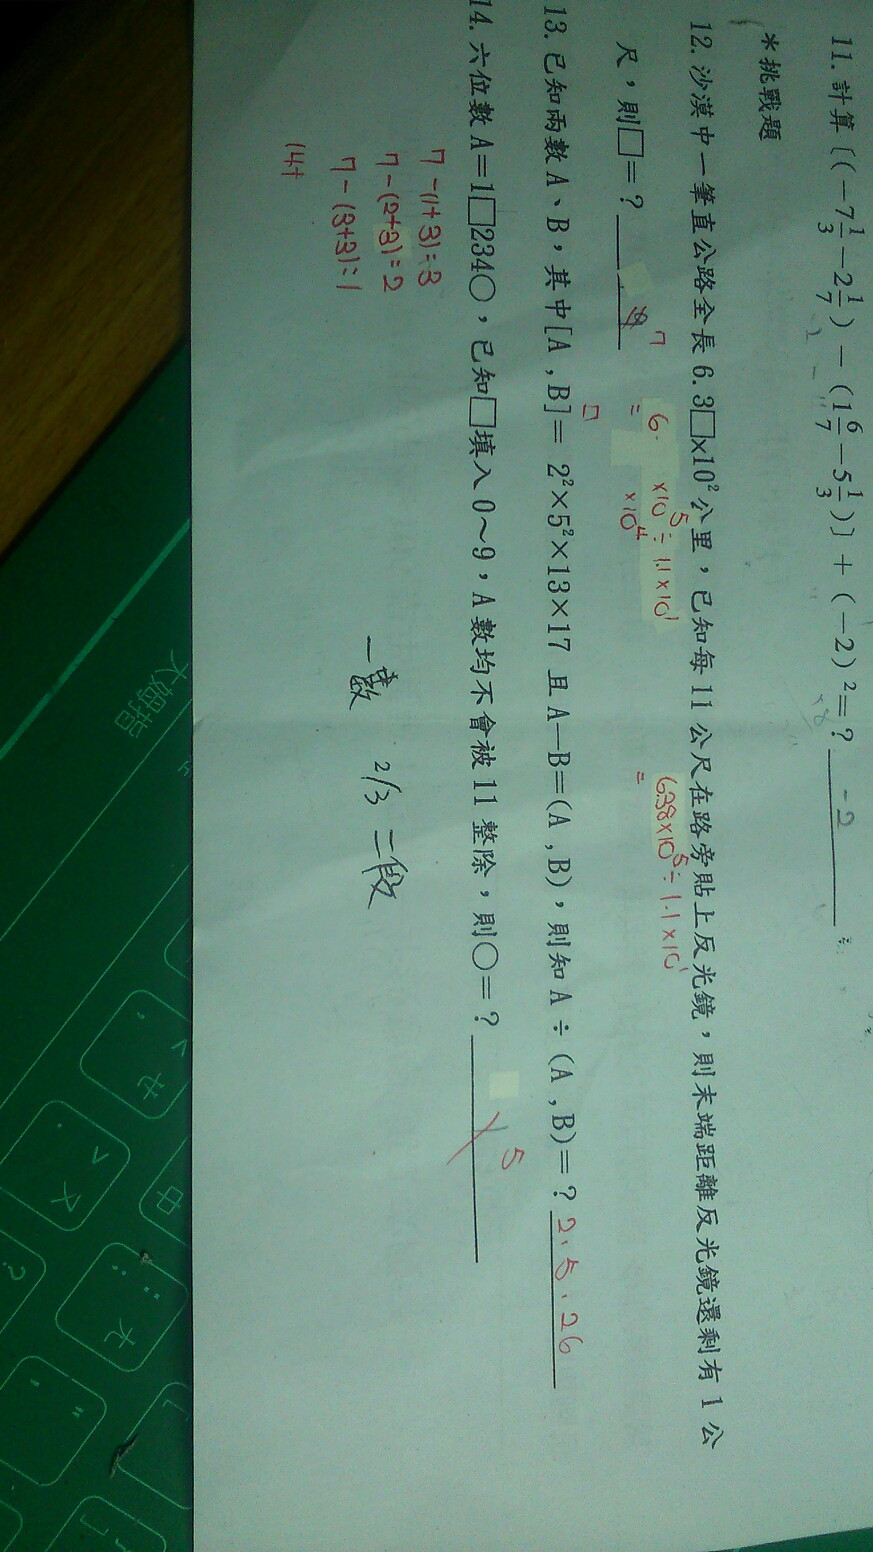 11. 計算〔(－7 1/3－2 1/7)－(1 6/7－5 1/3)〕÷(－2)²=? -2
*挑戰題
12. 沙漠中一筆直公路全長 6.3□×10²公里，已知每 11 公尺在路旁貼上反光鏡，則末端距離反光鏡還剩有 1 公
尺，則□=? 7
6. ×10⁵÷1.1×10¹
638×10⁵÷1.1×10¹
= ×10⁴ =
13. 已知兩數 A、B，其中[A , B]= 2²×5²×13×17 且 A—B=(A , B)，則知 A ÷ (A , B)=? 2.5.26
14. 六位數 A=1□234○，已知□填入 0~9，A 數均不會被 11 整除，則○=? 5
7-(1+3)=3
7-(2+3)=2
7-(3+3)=1
14+
一數 2/3 二段
大姆指
中